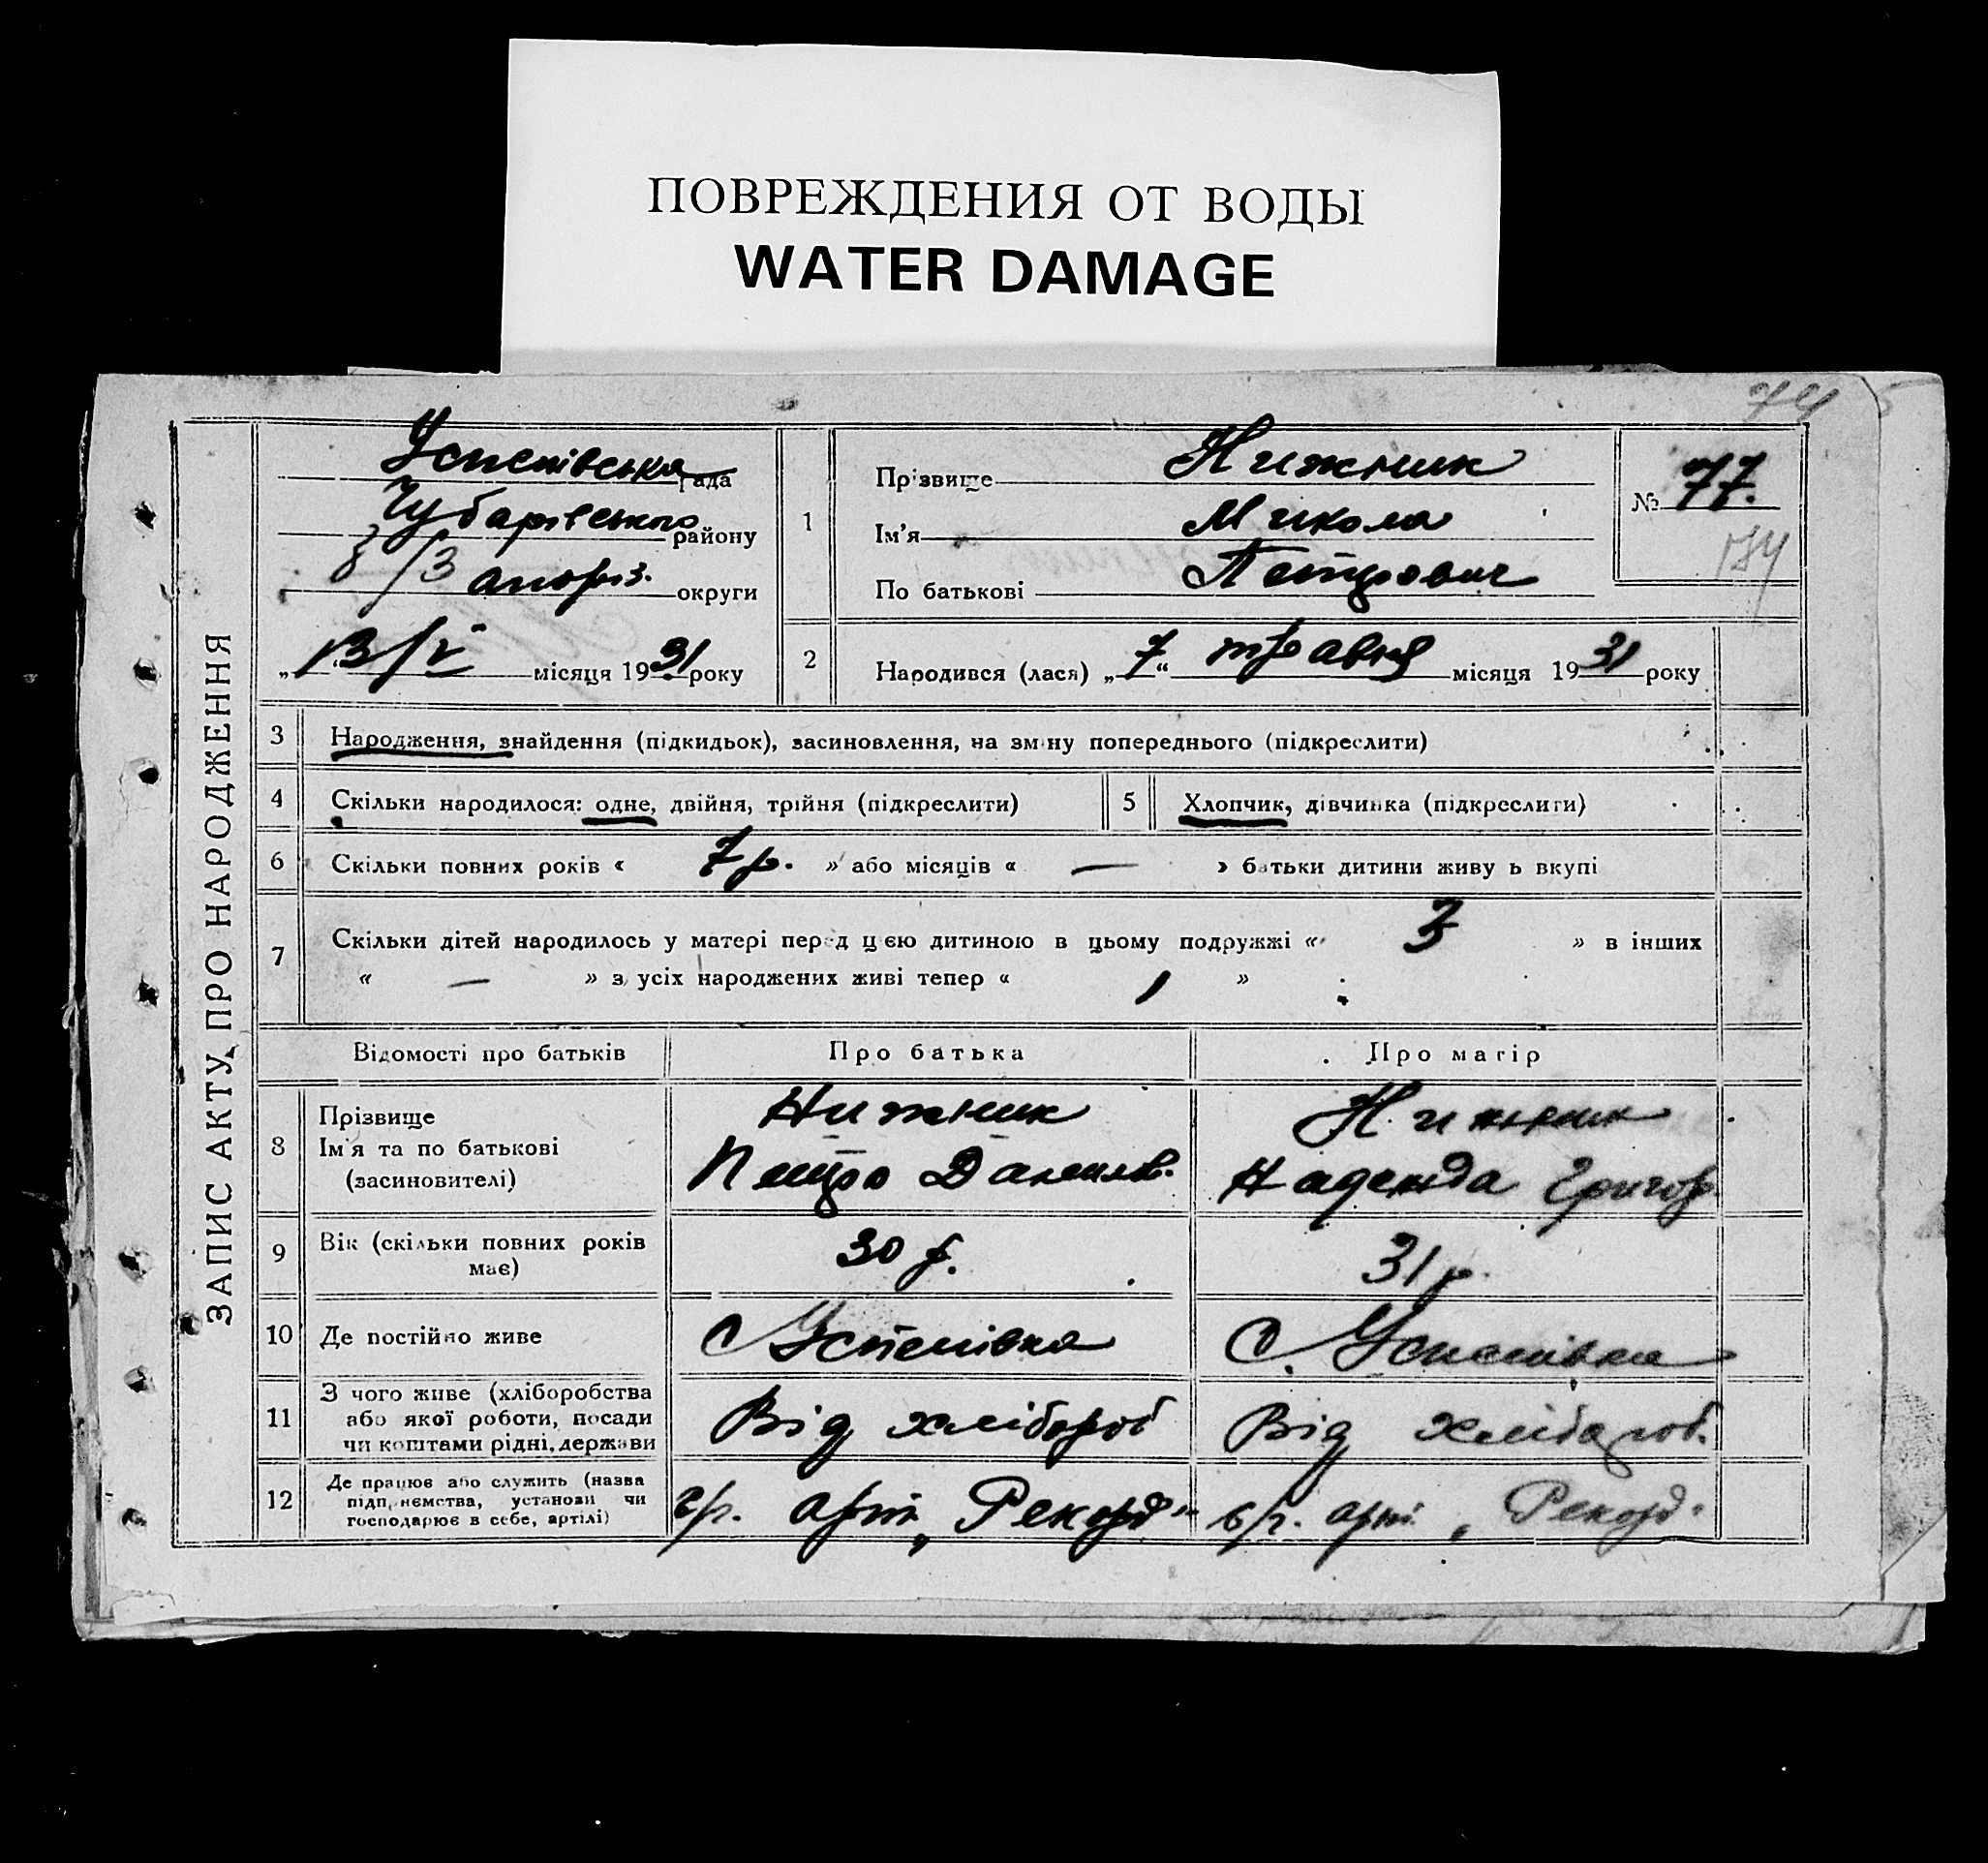 ПОВРЕЖДЕНИЯ ОТ ВОДЫ
WATER DAMAGE
74
ЗАПИС АКТУ ПРО НАРОДЖЕННЯ
Успенівська рада
Чубарівського району
Запоріз. округи
„13/V місяця 1931 року
1
Прізвище Нижник
Ім'я Микола
По батькові Петрович
№ 77.
174
2
Народився (лася) „7“ травня місяця 1931 року
3 Народження, знайдення (підкидьок), засиновлення, на зміну попереднього (підкреслити)
4 Скільки народилося: одне, двійня, трійня (підкреслити) 5 Хлопчик, дівчинка (підкреслити)
6 Скільки повних років « 7 р. » або місяців « — » батьки дитини живуть вкупі
7 Скільки дітей народилось у матері перед цією дитиною в цьому подружжі « 3 » в інших
« — » з усіх народжених живі тепер « 1 »
Відомості про батьків Про батька Про матір
8 Прізвище Нижник Нижник
Ім'я та по батькові Петро Данилов. Надежда Григор.
(засиновителі)
9 Вік (скільки повних років має) 30 р. 31 р.
10 Де постійно живе С Успенівка С. Успенівка
11 З чого живе (хліборобства або якої роботи, посади чи коштами рідні, держави Від хлібороб Від хлібороб.
12 Де працює або служить (назва підприємства, установи чи господарює в себе, артілі) арт. „Рекорд" арт. „Рекорд"